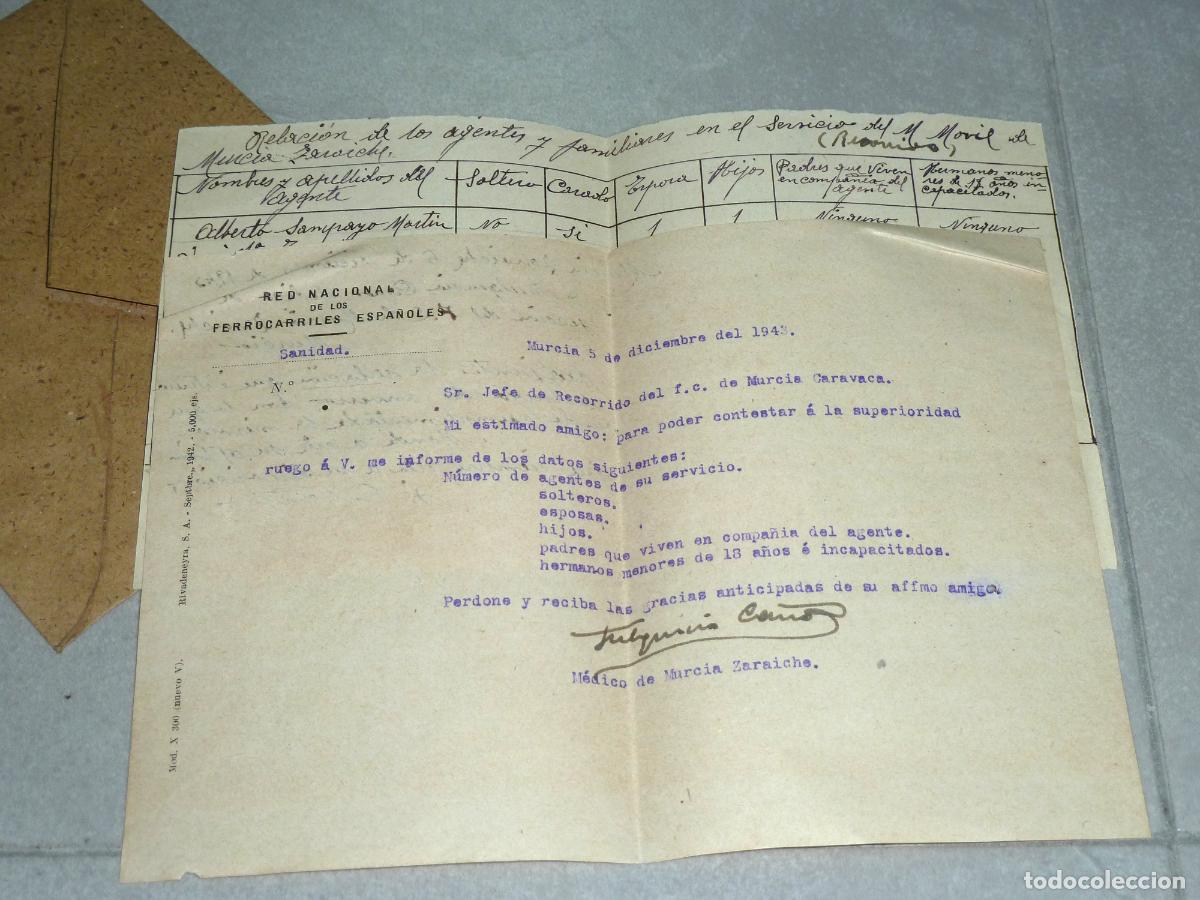 Relación de los agentes y familiares en el Servicio del M Movil de
Murcia Zaraiche. (Recorrido)
Nombres y apellidos del Agente
Soltero
Casado
Esposa
Hijos
Padres que viven en compañia del agente
Hermanos menores de 18 años incapacitados.
Alberto Sampayo Martin No Si 1 1 Ninguno Ninguno
RED NACIONAL
DE LOS
FERROCARRILES ESPAÑOLES
Sanidad.
N.º
Murcia 5 de diciembre del 1943.
Sr. Jefe de Recorrido del f.c. de Murcia Caravaca.
Mi estimado amigo: para poder contestar á la superioridad
ruego á V. me informe de los datos siguientes:
Número de agentes de su servicio.
solteros.
esposas.
hijos.
padres que viven en compañia del agente.
hermanos menores de 18 años é incapacitados.
Perdone y reciba las gracias anticipadas de su affmo amigo
Médico de Murcia Zaraiche.
Mod. X 300 (nuevo V). Rivadeneyra, S. A. - Septbre., 1942. - 5.000 ejs.
todocoleccion